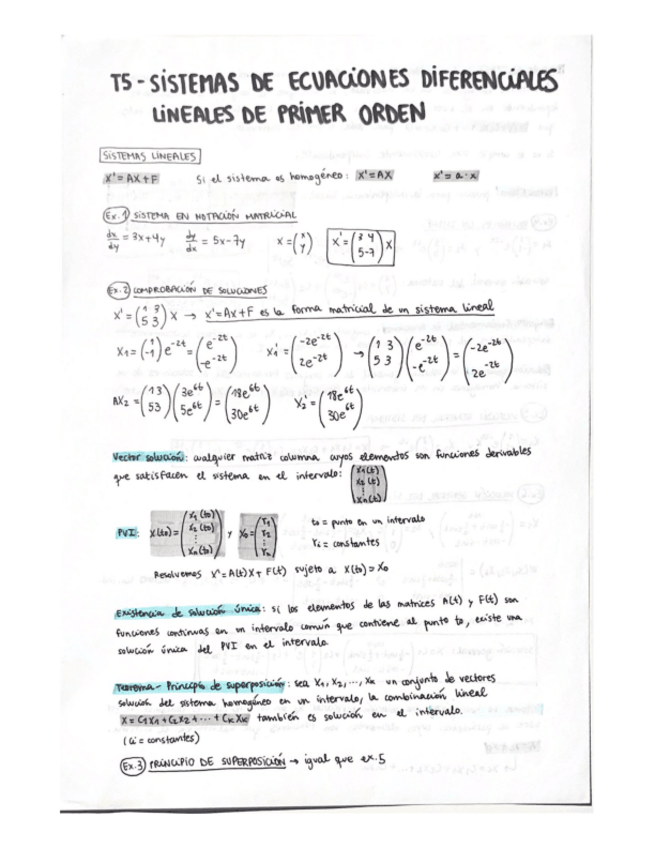 T5 - SISTEMAS DE ECUACIONES DIFERENCIALES
LINEALES DE PRIMER ORDEN
SISTEMAS LINEALES
X' = AX + F    Si el sistema es homogéneo: X' = AX    x' = a · x
Ex. 1 SISTEMA EN NOTACIÓN MATRICIAL
dx/dy = 3x+4y    dy/dx = 5x-7y    X = (x y)    X' = (3 4 5 -7) X
Ex. 2 COMPROBACIÓN DE SOLUCIONES
X' = (1 3 5 3) X → X' = AX + F es la forma matricial de un sistema lineal
X1 = (1 -1) e^-2t = (e^-2t -e^-2t)    X1' = (-2e^-2t 2e^-2t) → (1 3 5 3) (e^-2t -e^-2t) = (-2e^-2t 2e^-2t)
AX2 = (1 3 5 3) (3e^6t 5e^6t) = (18e^6t 30e^6t)    X2' = (18e^6t 30e^6t)
Vector solución: cualquier matriz columna cuyos elementos son funciones derivables
que satisfacen el sistema en el intervalo: (x1(t) x2(t) ⋮ xn(t))
PVI: X(to) = (x1(to) x2(to) ⋮ xn(to)) y X0 = (γ1 γ2 ⋮ γn)
to = punto en un intervalo
γi = constantes
Resolvemos X' = A(t)X + F(t) sujeto a X(to) = X0
Existencia de solución única: si los elementos de las matrices A(t) y F(t) son
funciones continuas en un intervalo común que contiene al punto to, existe una
solución única del PVI en el intervalo.
Teorema - Principio de superposición: sea X1, X2, ..., Xk un conjunto de vectores
solución del sistema homogéneo en un intervalo, la combinación lineal
X = C1X1 + C2X2 + ... + CkXk también es solución en el intervalo.
(Ci = constantes)
Ex. 3 PRINCIPIO DE SUPERPOSICIÓN → igual que ex. 5